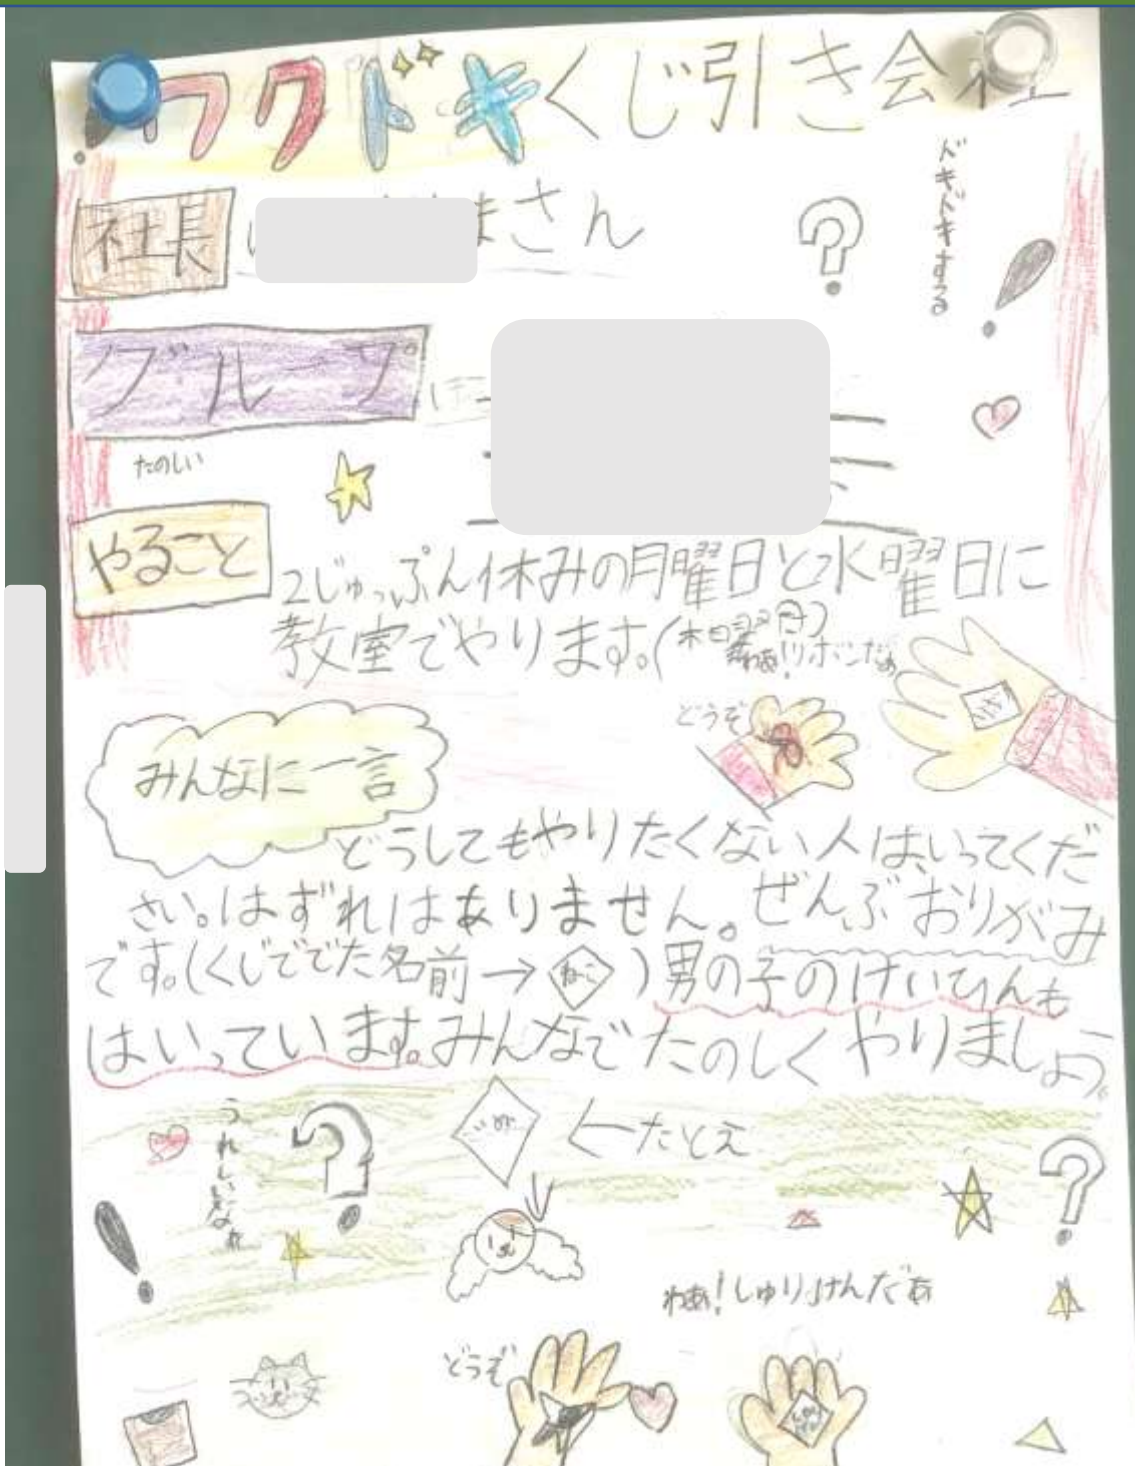 ワクドキくじ引き会社
ドキドキする
社長
まさん
グループ
たのしい
やること
2じゅっぷん休みの月曜日と水曜日に
教室でやります。(木曜日)
わあ!リボンだぁ
どうぞ
みんなに一言
どうしてもやりたくない人はいってくだ
さい。はずれはありません。ぜんぶおりがみ
です。(くじででた名前→ねこ)男の子のけいひんも
はいっています。みんなでたのしくやりましょう。
←たとえ
うれしいなぁ
わあ!しゅりけんだぁ
どうぞ